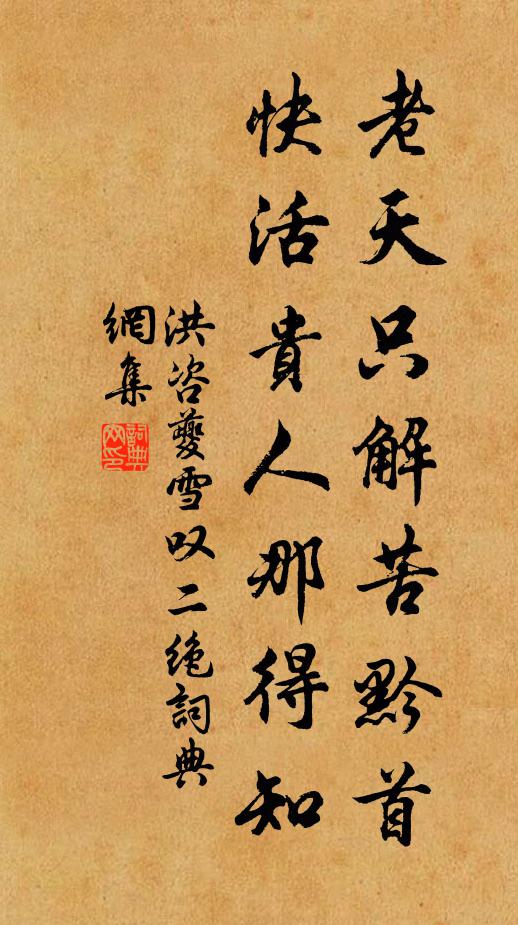 老天只解苦黔首
快活貴人那得知
洪咨夔雪叹二绝詞典
網集
詞典网印